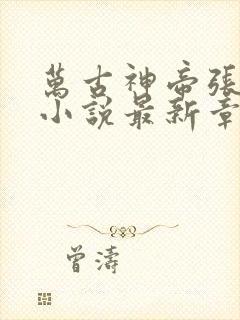 萬古神帝張
小說最新章
曾濤